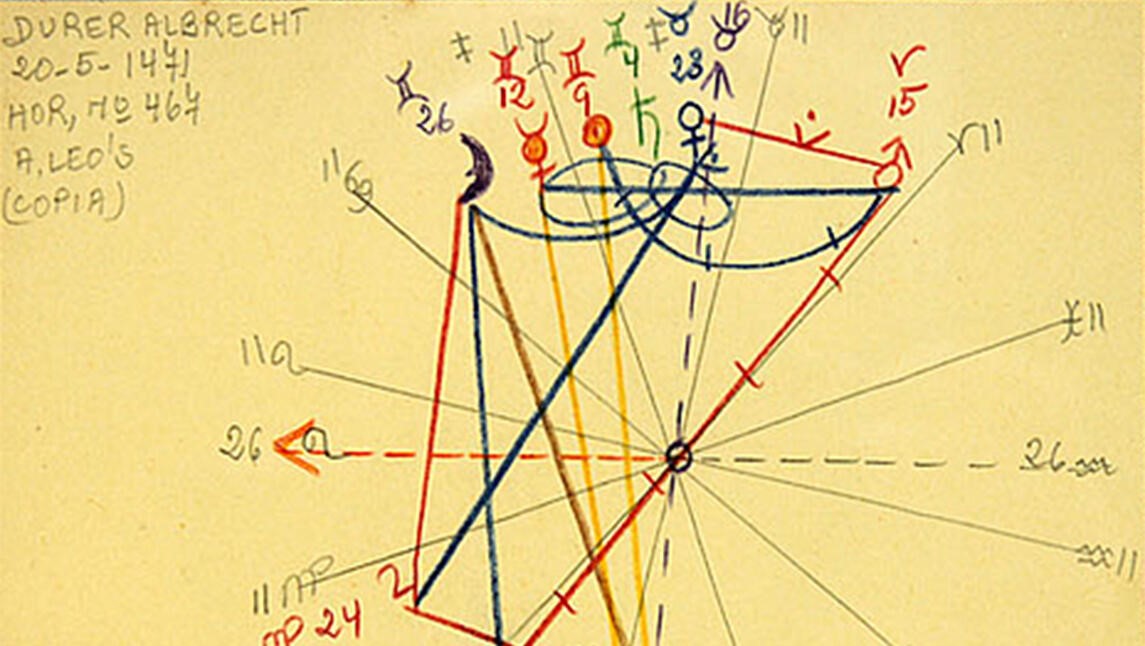 DURER ALBRECHT
20-5-1471
HOR, Nº 467
A. LEO'S
(COPIA)
♊ 26
11 ♊
♊ 12
♊ 9
♊ 4
♉ 23
♉ 16
♉ 11
♈ 15
♈ 11
11 ♋
♓ 11
11 ♌
26 ♌
26 ♒
♒ 11
11 ♍
♍ 24